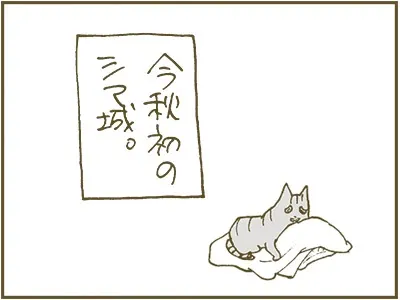 今秋初の
シマ城。